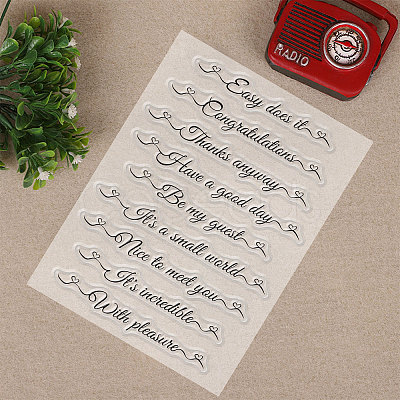 RADIO
Easy does it
Congratulations
Thanks anyway
Have a good day
Be my guest
It's a small world
Nice to meet you
It's incredible
With pleasure